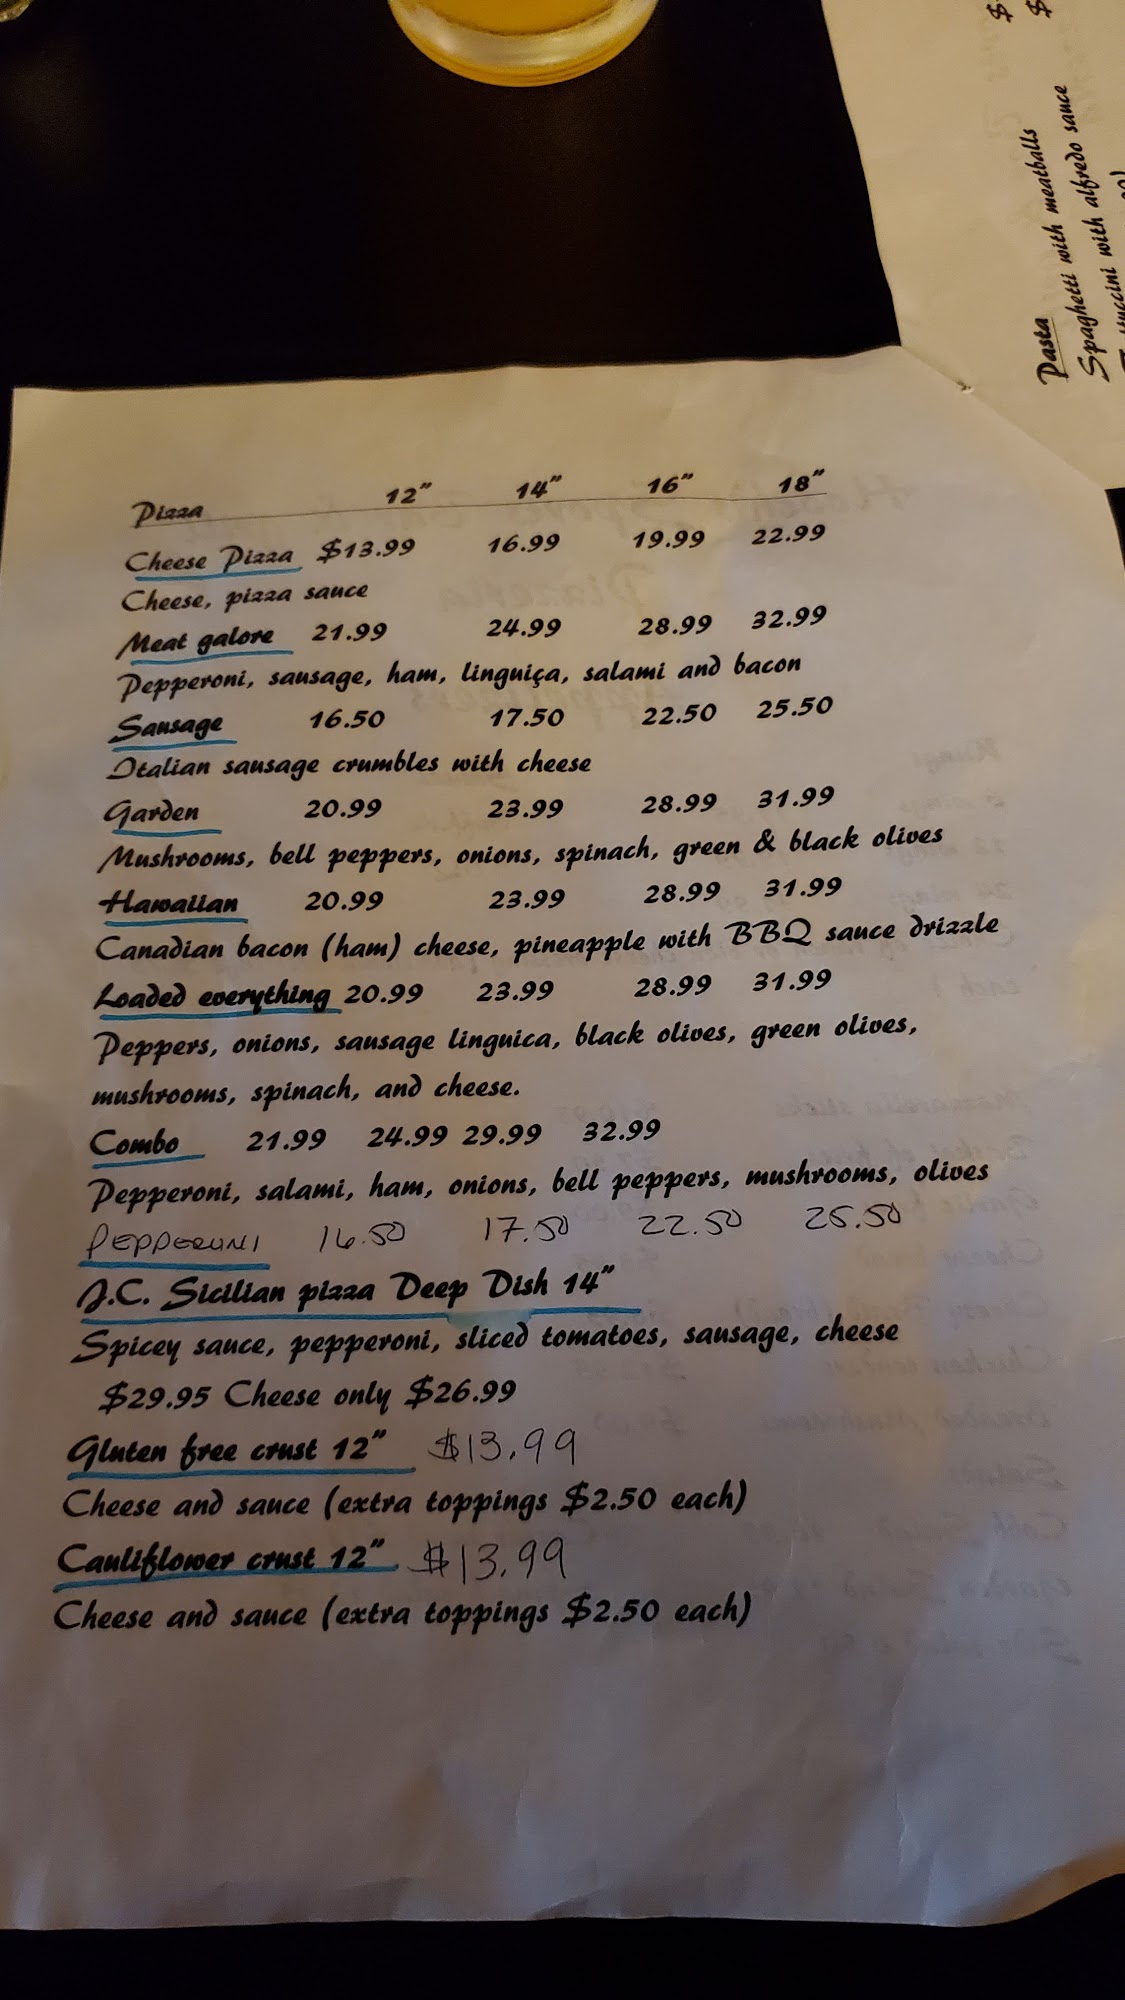 Pizza 12" 14" 16" 18"
Cheese Pizza $13.99 16.99 19.99 22.99
Cheese, pizza sauce
Meat galore 21.99 24.99 28.99 32.99
Pepperoni, sausage, ham, linguiça, salami and bacon
Sausage 16.50 17.50 22.50 25.50
Italian sausage crumbles with cheese
Garden 20.99 23.99 28.99 31.99
Mushrooms, bell peppers, onions, spinach, green & black olives
Hawaiian 20.99 23.99 28.99 31.99
Canadian bacon (ham) cheese, pineapple with BBQ sauce drizzle
Loaded everything 20.99 23.99 28.99 31.99
Peppers, onions, sausage linguica, black olives, green olives,
mushrooms, spinach, and cheese.
Combo 21.99 24.99 29.99 32.99
Pepperoni, salami, ham, onions, bell peppers, mushrooms, olives
PEPPERONI 16.50 17.50 22.50 25.50
J.C. Sicilian pizza Deep Dish 14"
Spicey sauce, pepperoni, sliced tomatoes, sausage, cheese
$29.95 Cheese only $26.99
Gluten free crust 12" $13.99
Cheese and sauce (extra toppings $2.50 each)
Cauliflower crust 12" $13.99
Cheese and sauce (extra toppings $2.50 each)
Pasta
Spaghetti with meatballs $
with alfredo sauce $